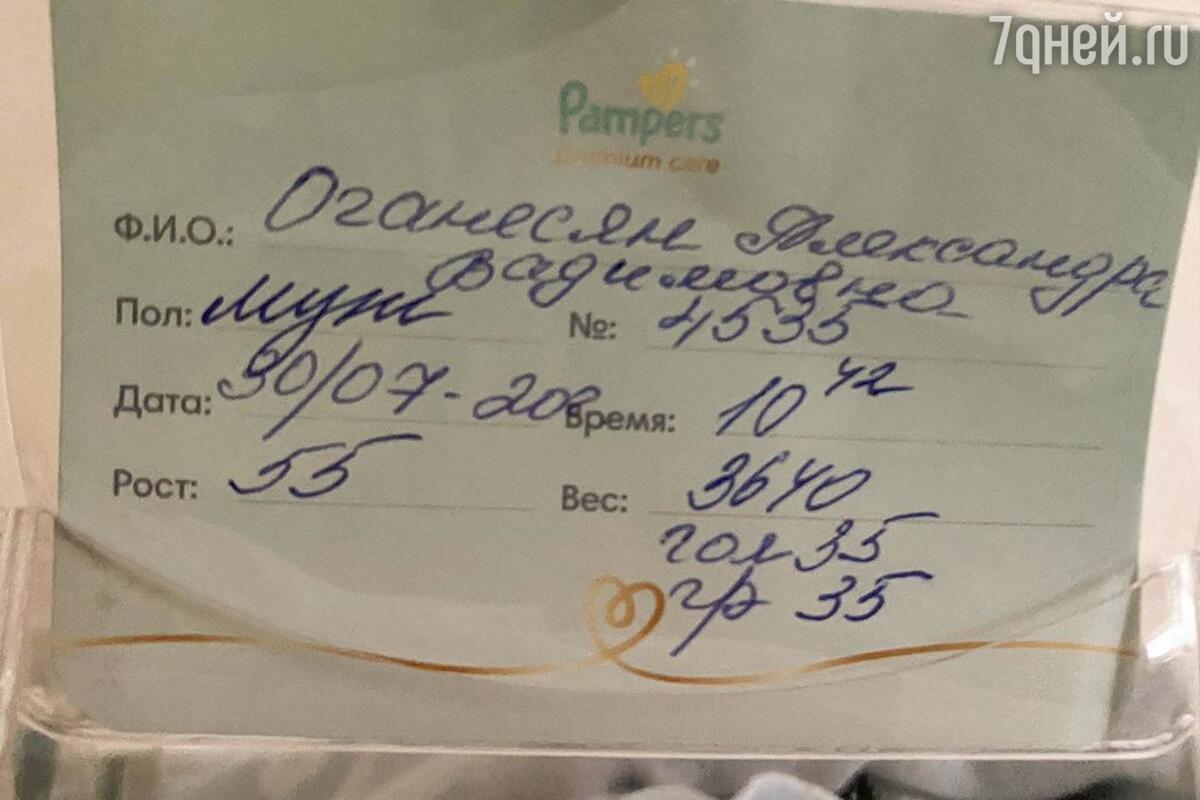 7дней.ru
Pampers
premium care
Ф.И.О.: Оганесян Александра
Вадимовна
Пол: муж №: 4535
Дата: 30/07-202 Время: 10 42
Рост: 55 Вес: 3640
гол 35
гр 35